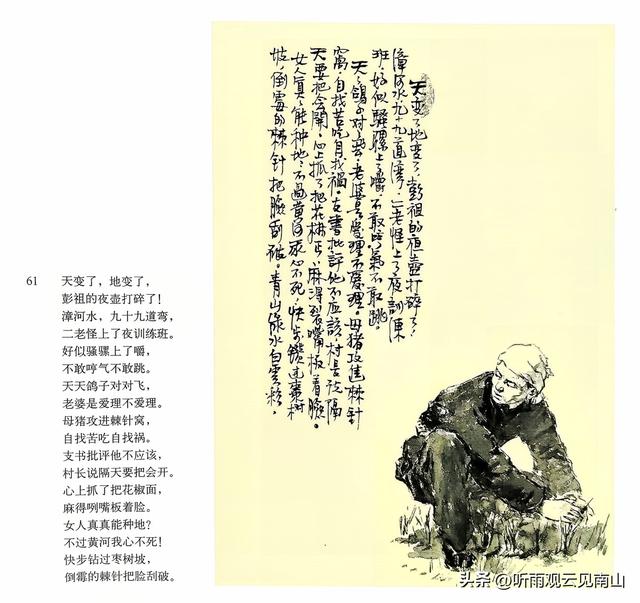 61 天变了，地变了，
彭祖的夜壶打碎了！
漳河水，九十九道弯，
二老怪上了夜训练班。
好似骚骡上了嚼，
不敢哼气不敢跳。
天天鸽子对对飞，
老婆是爱理不爱理。
母猪攻进棘针窝，
自找苦吃自找祸。
支书批评他不应该，
村长说隔天要把会开。
心上抓了把花椒面，
麻得咧嘴板着脸。
女人真真能种地？
不过黄河我心不死！
快步钻过枣树坡，
倒霉的棘针把脸刮破。
天变了地变了，彭祖的夜壶打碎了！
漳河水九十九道湾，二老怪上了夜訓練
班，好似騷騾上了嚼，不敢哼气不敢跳
天天鸽子对对飞，老婆是爱理不爱理。母猪攻进棘针
窝，自找苦吃自找祸。支書批評他不应該，村長说隔
天要把会開，心上抓了把花椒面，麻得裂嘴板着臉。
女人真真能种地，不過黄河我心不死，快步鑽过棗树
坡，倒霉的棘针把臉刮破。青山绿水白雲飘，
头条 @听雨观云见南山